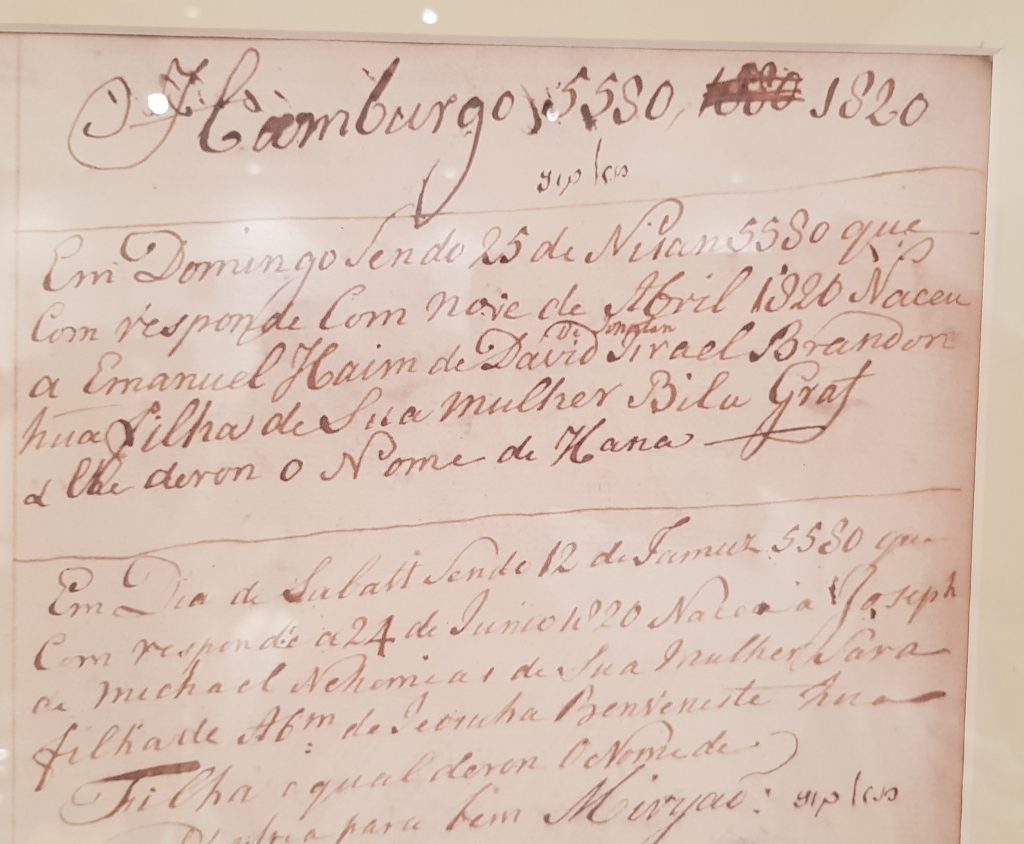 Hamburgo 5580, 1820
Em Domingo sendo 25 de Nisan 5580 que
Com responde Com nove de Abril 1820 Naceu
De Jonatan
a Emanuel Haim de David Israel Brandon
hua filha de Sua mulher Bila Graf
a lhe deron o Nome de Hana
Em Dia de Sabatt sende 12 de Tamuz 5580 que
Com responde a 24 de Junio 1820 Naceo a Joseph
de Michael Nehemias de Sua mulher Sara
filha de Abm de Benveniste hua
Filha a qual deron o Nome de
para bem Miryao: